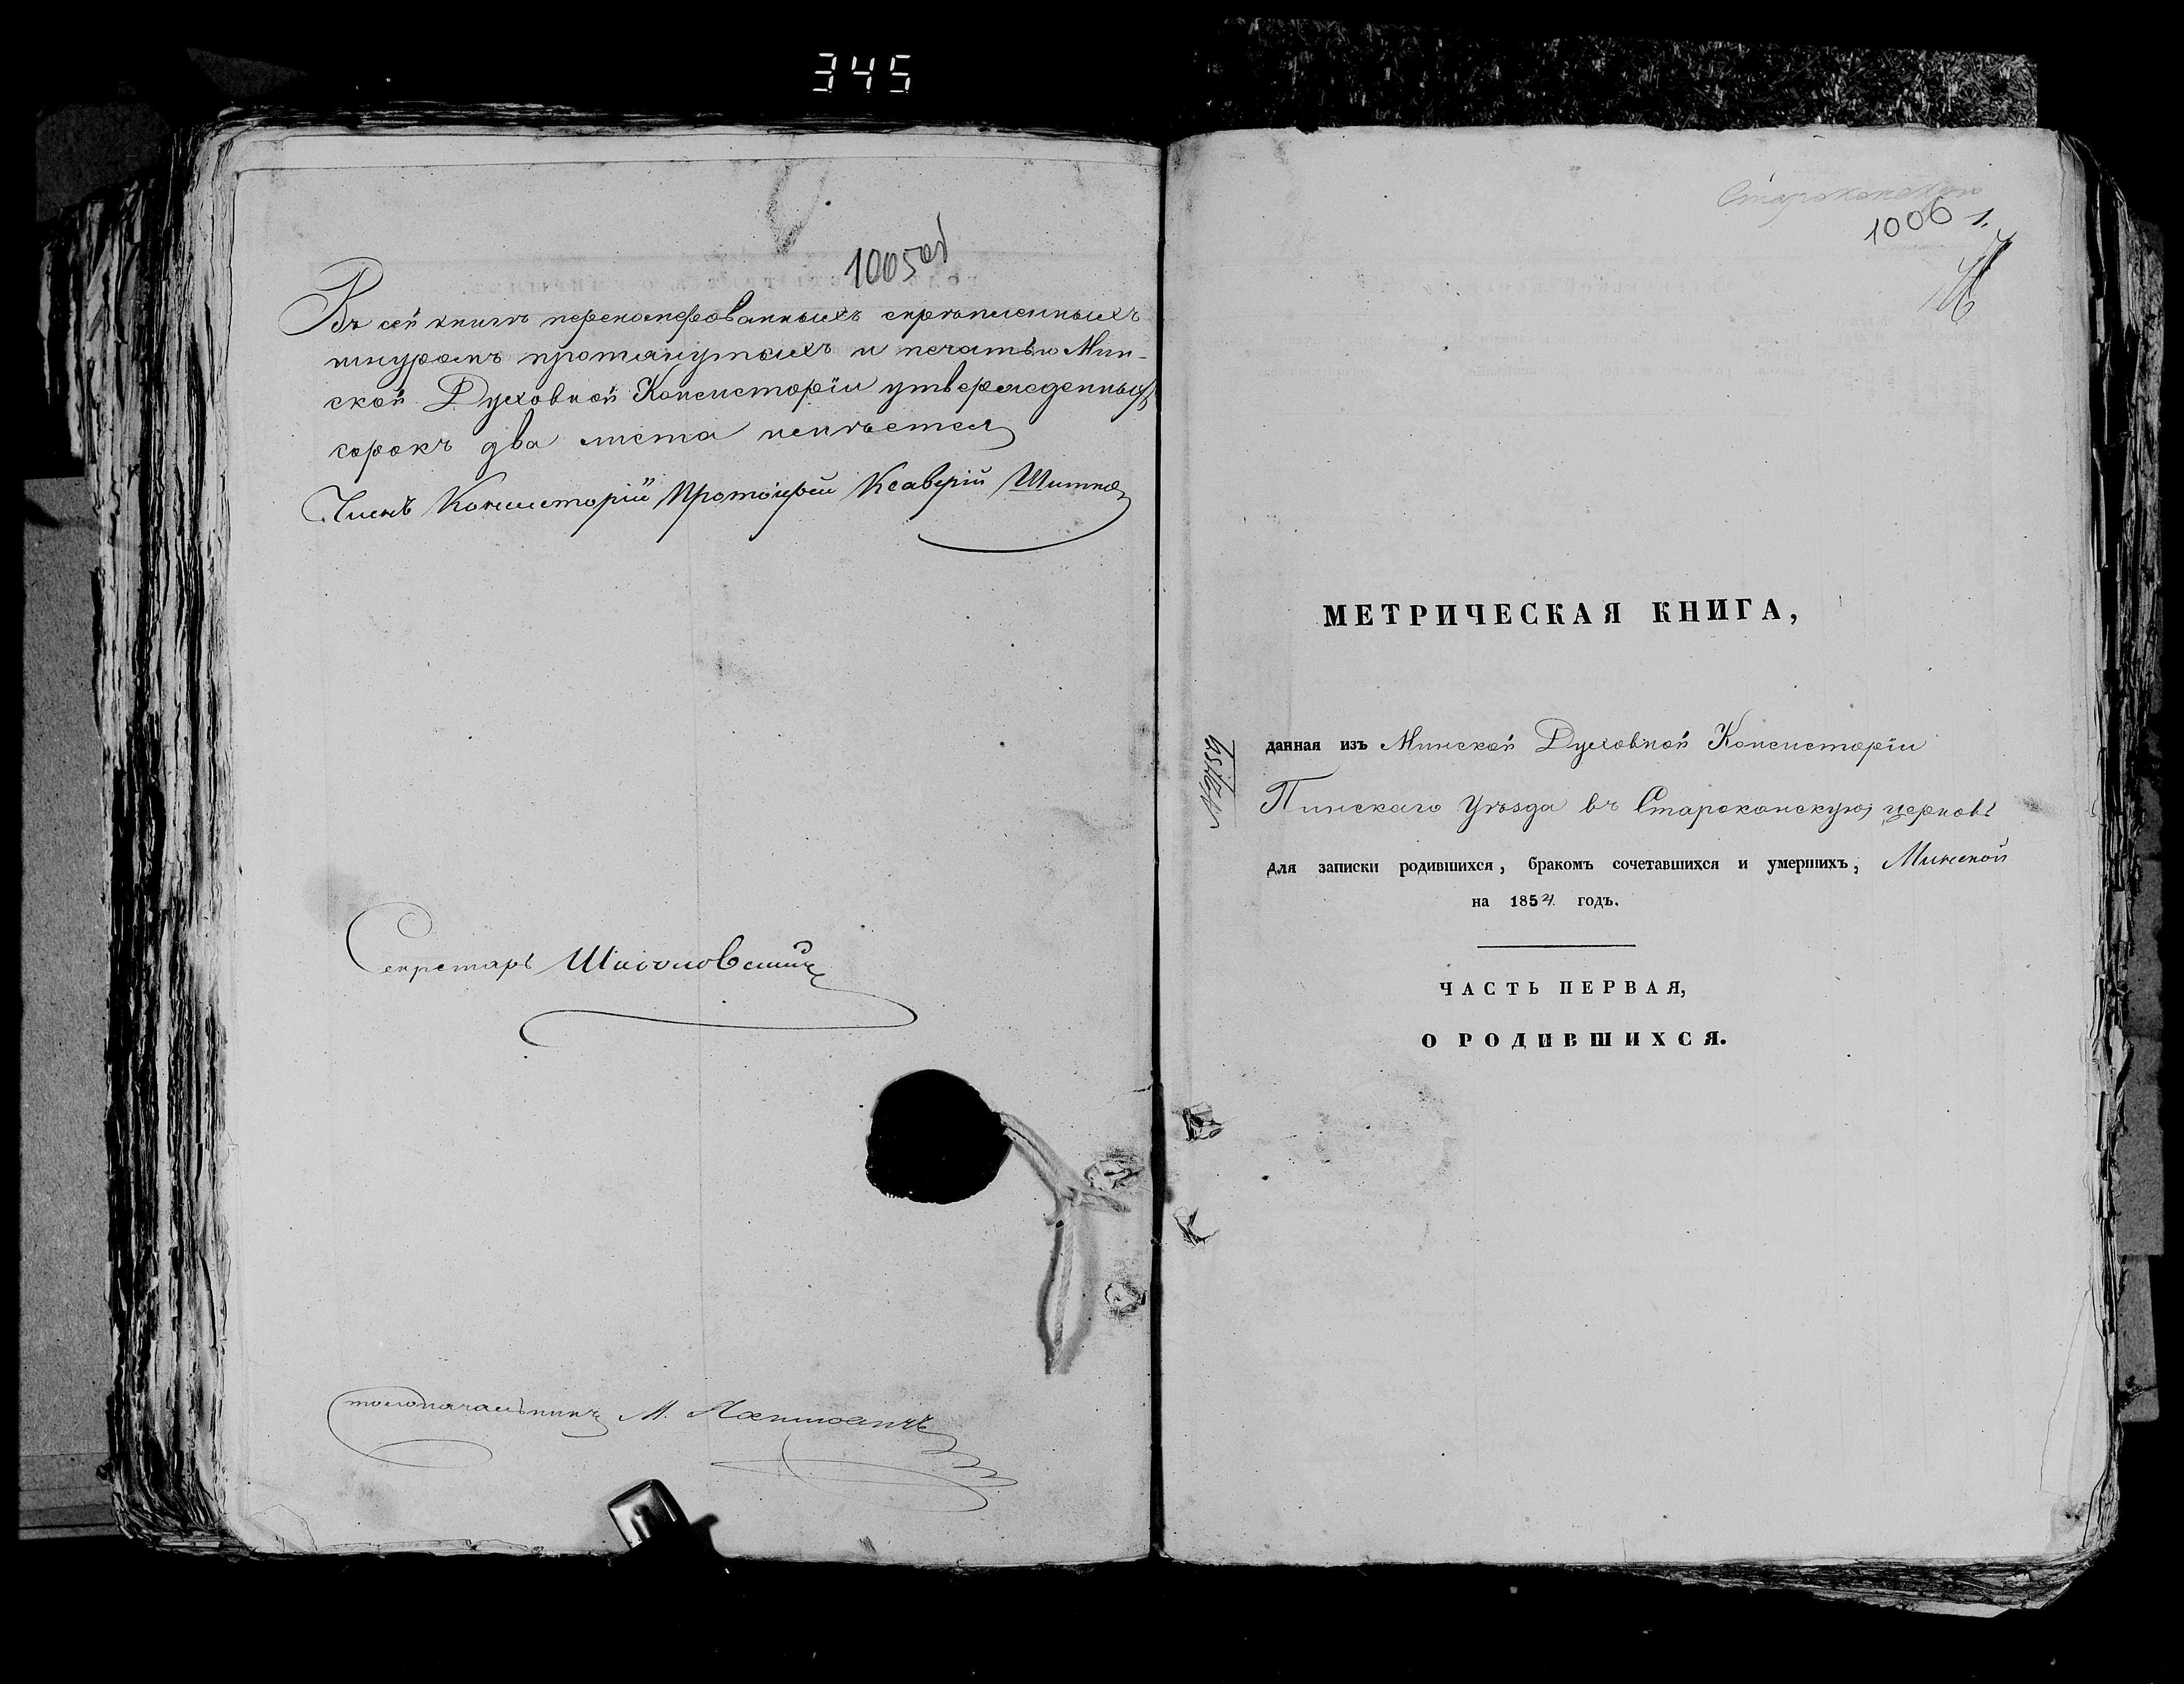 345
1005об
Въ сей книгѣ переномерованныхъ скрѣпленныхъ
шнуромъ протянутыхъ и печатью Мин-
ской Духовной Консисторіи утвержденныхъ
сорокъ два листа имѣется
Членъ Консисторіи Протоіерей Ксаверій
Секретарь
Столоначальникъ М.
1006 1.
МЕТРИЧЕСКАЯ КНИГА,
данная изъ Минской Духовной Консисторіи
Пинскаго Уѣзда въ Староконскую церковь
для записки родившихся, бракомъ сочетавшихся и умершихъ, Минской
на 1854 годъ.
ЧАСТЬ ПЕРВАЯ,
О РОДИВШИХСЯ.